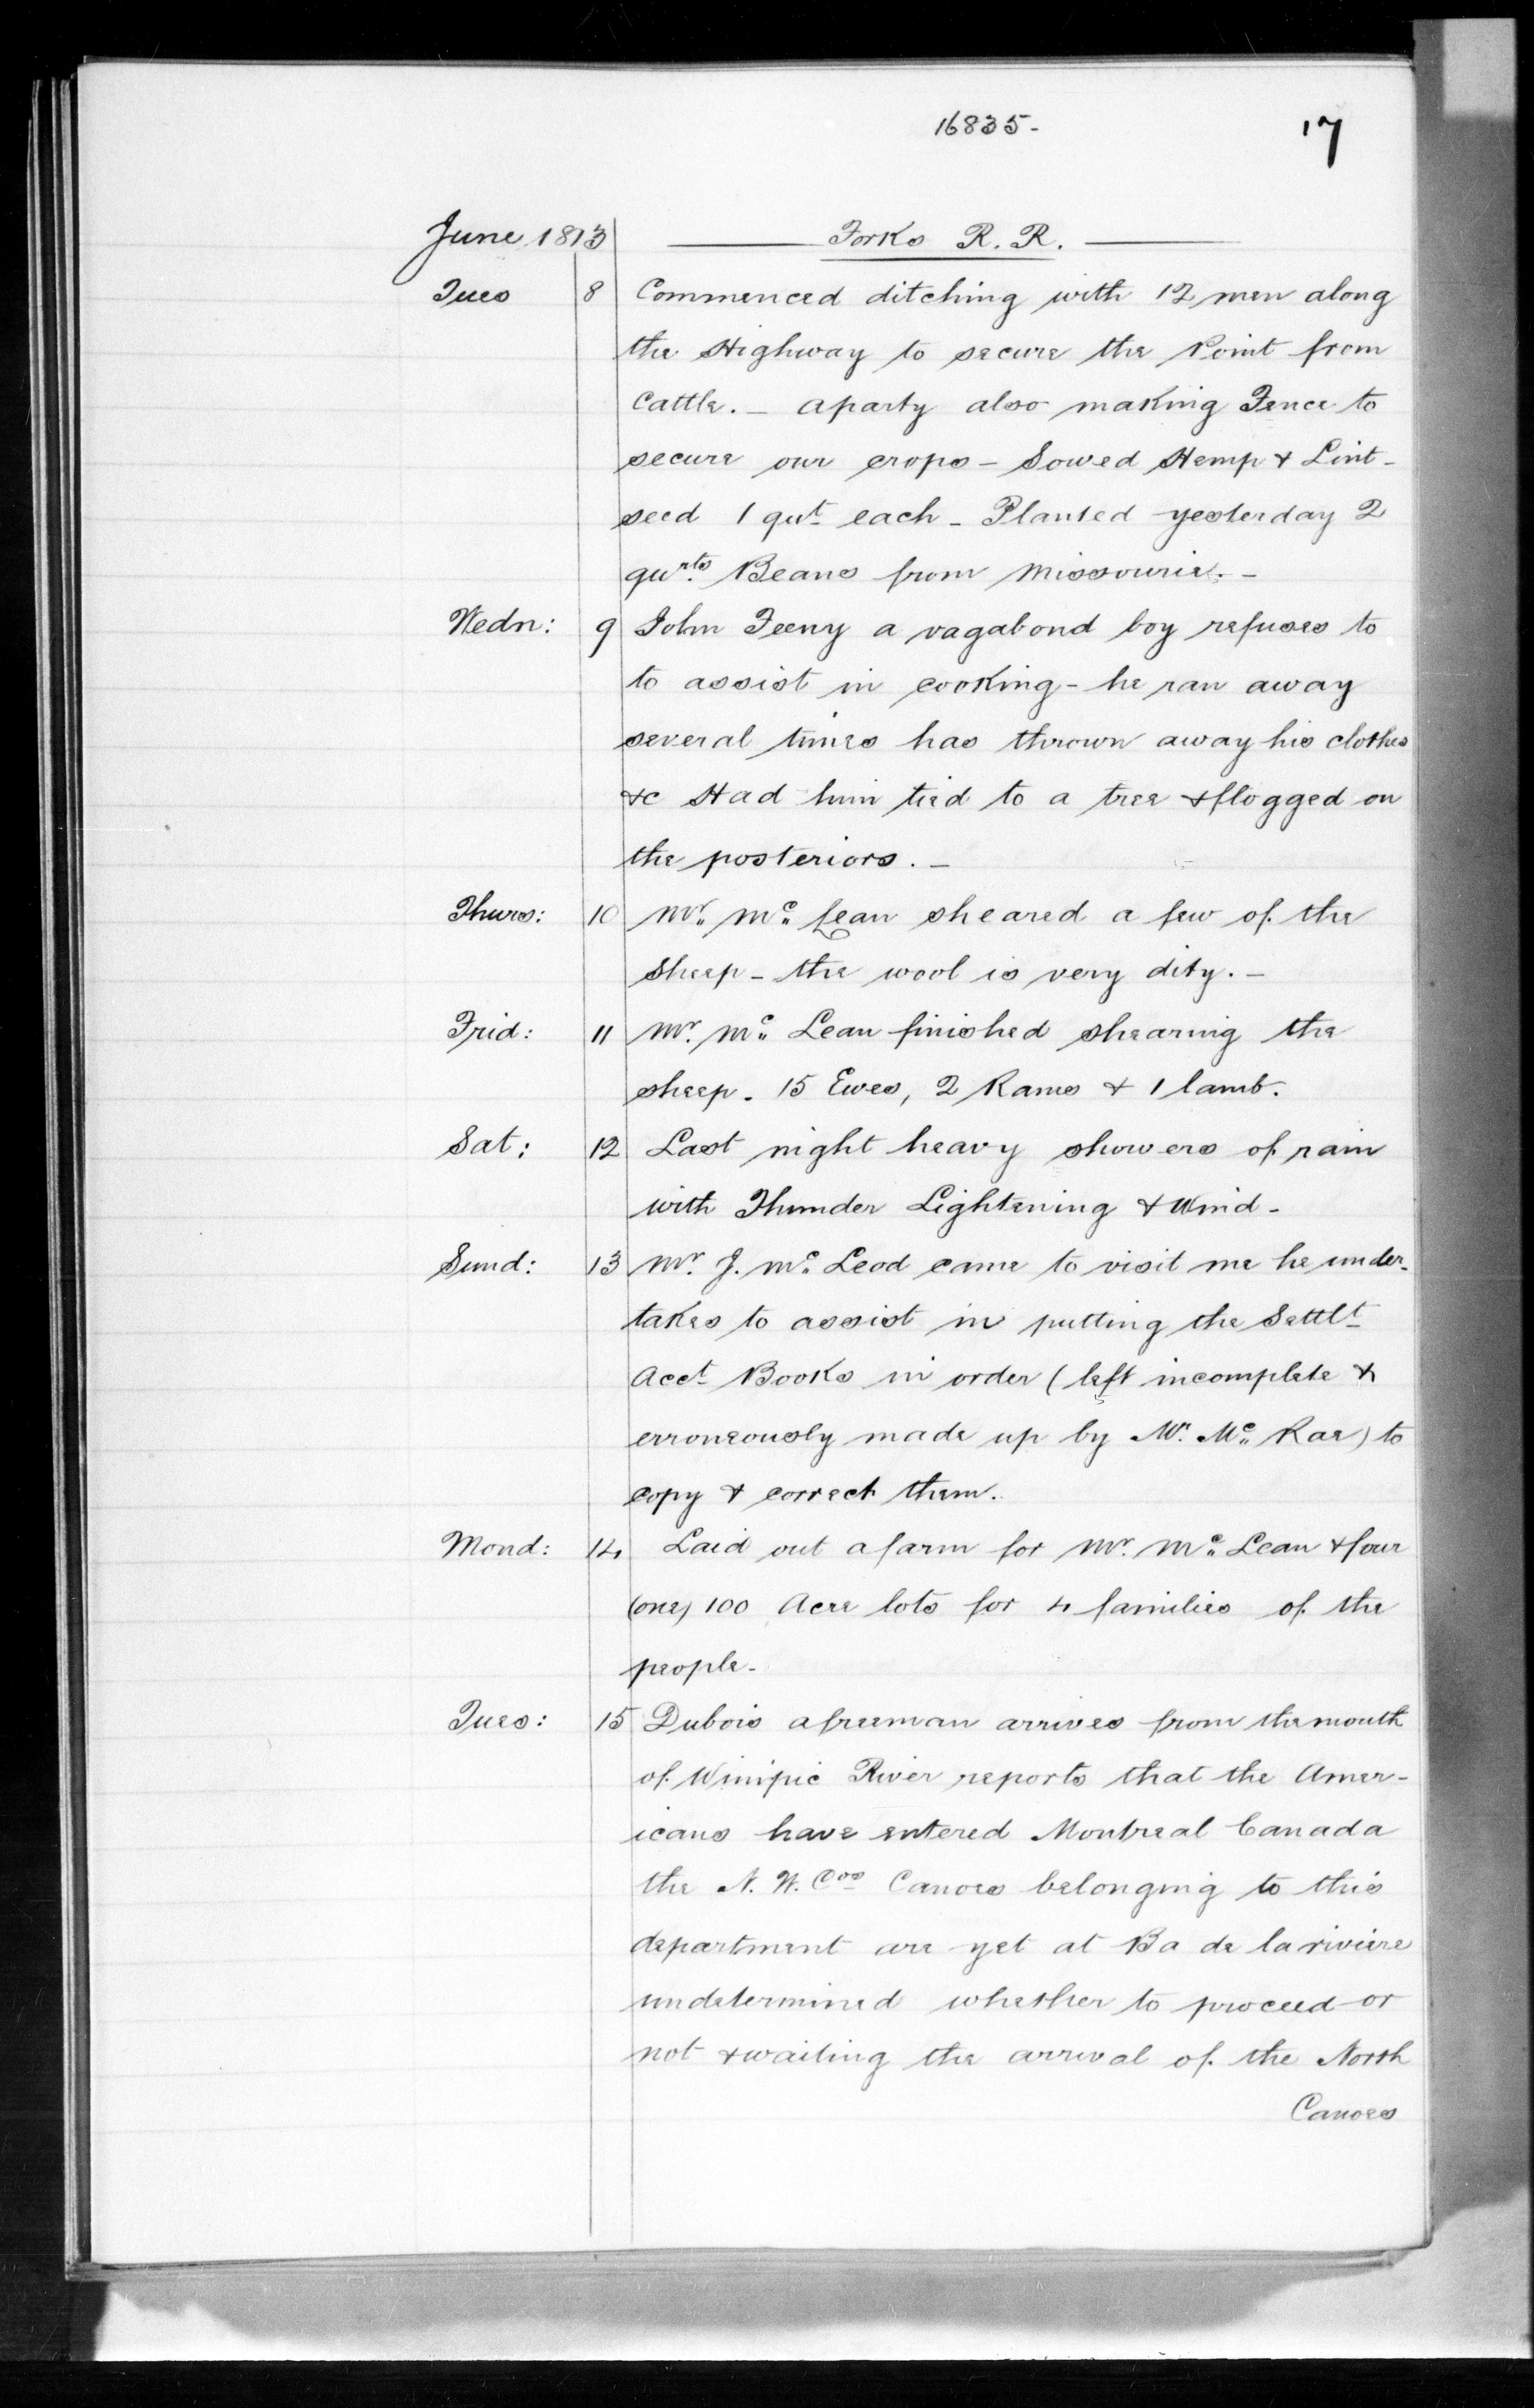 16835-
17
June 1813 Forks R. R.
Tues 8 Commenced ditching with 12 men along
the Highway to secure the Point from
Cattle. — a party also making Fence to
secure our crops — Sowed Hemp & Lint-
seed 1 qut each — Planted yesterday 2
qurts Beans from Missourie. —
Wedn: 9 John Feeny a vagabond boy refuses to
to assist in cooking — he ran away
several times has thrown away his clothes
&c Had him tied to a tree & flogged on
the posteriors. —
Thurs: 10 Mr. Mc Lean sheared a few of the
Sheep — the wool is very dity. —
Frid: 11 Mr. Mc Lean finished shearing the
sheep. 15 Ewes, 2 Rams & 1 lamb.
Sat: 12 Last night heavy showers of rain
with Thunder Lightening & Wind —
Sund: 13 Mr. J. Mc Leod came to visit me he under-
takes to assist in putting the Settlt
Acct Books in order (left incomplete &
erroneously made up by Mr. Mc Rae) to
copy & correct them.
Mond: 14 Laid out a farm for Mr. Mc Lean & four
(one) 100 Acre lots for 4 families of the
people —
Tues: 15 Dubois a freeman arrives from the mouth
of Winipic River reports that the Amer-
icans have entered Montreal Canada
the N. W. Cos Canoes belonging to this
department are yet at Ba de la riviere
undetermined whether to proceed or
not & waiting the arrival of the North
Canoes